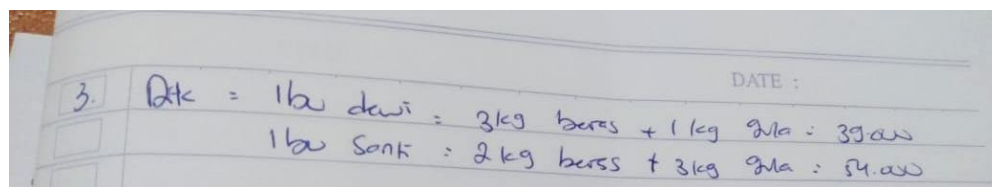 DATE :
3. Dik = Ibu dewi = 3kg beras + 1 kg gula = 39.000
Ibu Santi : 2 kg beras + 3 kg gula : 54.000